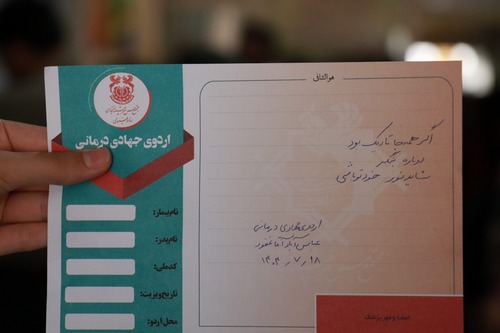 هوالشافی
اردوی جهادی درمانی
نام بیمار:
نام پدر:
کد ملی:
تاریخ ویزیت:
محل اردو:
اگر همه جا تاریک بود
دوباره بنگر
شاید نور خود تو باشی
اردوی جهادی درمانی
۱۴۰۳/۷/۱۸
امضا و مهر پزشک